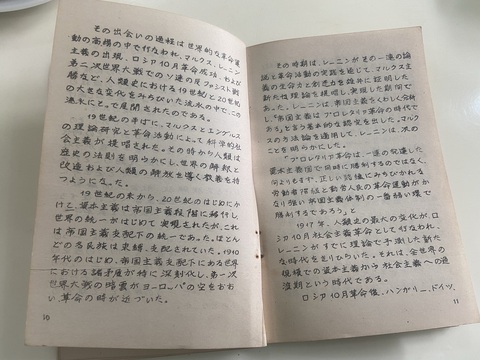 その出会いの過程は世界的な革命運
動の高揚の中で行なわれ、マルクス、レーニン
主義の出現、ロシア10月革命成功、および
第二次世界大戦でのソ連の反ファシスト戦
勝など、人類史における19世紀と20世紀
の大きな変化をみちびいた流水の中で、この
流水にとって展開されたのである。
19世紀の半ばに、マルクスとエンゲルス
の理論研究と革命活動によって、科学的社
会主義が提唱された。その時から人類は
歴史の法則を明らかにし、世界の解釈と
改造および人類の解放を導く教義を持
つようになった。
19世紀の末から、20世紀のはじめにか
けて、資本主義は帝国主義段階に移行し、
世界の統一がはじめて実現されたが、これ
は資本主義支配下の統一であった。ほとん
どの各民族は束縛、支配されていた。1910
年代のはじめ、帝国主義支配下にある世界
における諸矛盾が特に深刻化し、第一次
世界大戦の暗雲がヨーロッパの空をおお
い、革命の時が近づいた。
10
その時期は、レーニンがその一連の論
説と革命活動の実践を通じて、マルクス主義
の生命力と創造力を確井に証明した
新たな理論を提唱し、実現した期間で
あった。レーニンは帝国主義をくわしく分析
し、"帝国主義は プロレタリア革命の時代で
ある"と言う著名的な認定を出した。マルクス
の方法論を適用して、レーニンは次の
ことを明らかにした。
"プロレタリア革命は、一連の発達した
資本主義国で同時に勝利するのではなく、
何よりもまず、正しい認識にみちびかれる
労働者階級と勤労人民の革命運動がか
なり強い帝国主義体制の一番弱い環で
勝利するであろう。"
1917年、人類史の最大の変化が、ロ
シア10月社会主義革命として行なわれ、
レーニンがすでに理論で予測した新た
な時代をきりひらいた。それは、全世界の
規模での資本主義から社会主義への過
渡期という時代である。
ロシア10月革命後、ハンガリー、ドイツ、
11